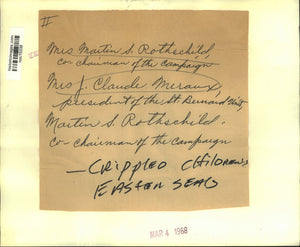 II
Mrs Martin S. Rothschild,
co chairman of the campaign
Mrs J. Claude Meraux,
president of the St Bernard Unit,
Martin S. Rothschild.
co chairman of the campaign
— CRIPPLED CHILDREN'S
EASTER SEALS
MAR 4 1968